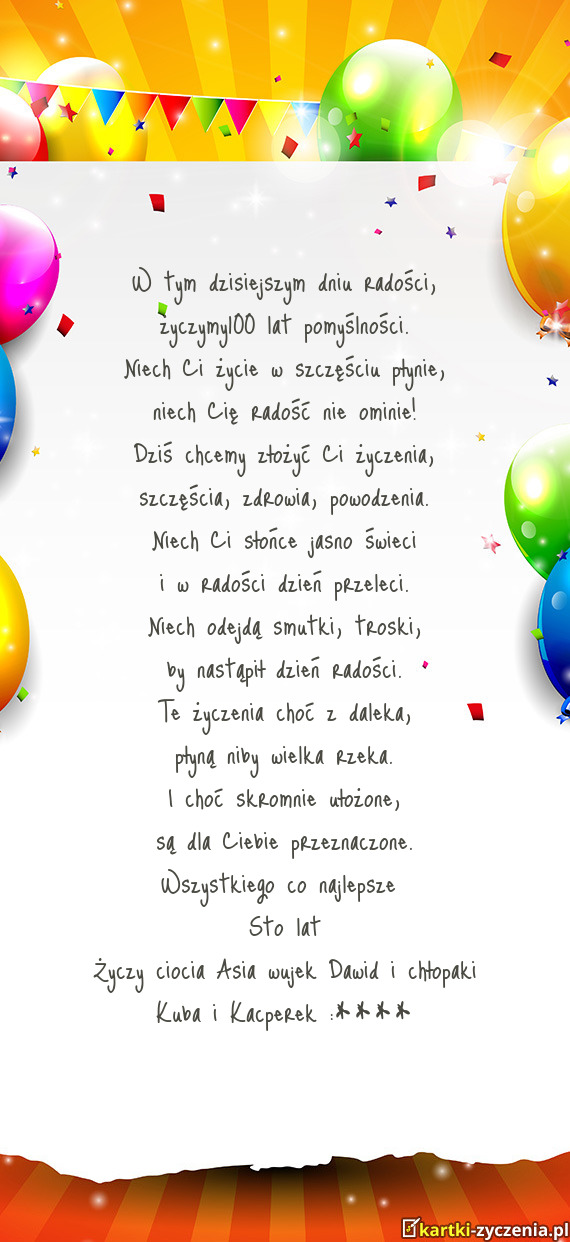 W tym dzisiejszym dniu radości,
życzymy100 lat pomyślności.
Niech Ci życie w szczęściu płynie,
niech Cię radość nie ominie!
Dziś chcemy złożyć Ci życzenia,
szczęścia, zdrowia, powodzenia.
Niech Ci słońce jasno świeci
i w radości dzień przeleci.
Niech odejdą smutki, troski,
by nastąpił dzień radości.
Te życzenia choć z daleka,
płyną niby wielka rzeka.
I choć skromnie ułożone,
są dla Ciebie przeznaczone.
Wszystkiego co najlepsze
Sto lat
Życzy ciocia Asia wujek Dawid i chłopaki
Kuba i Kacperek :****
kartki-zyczenia.pl